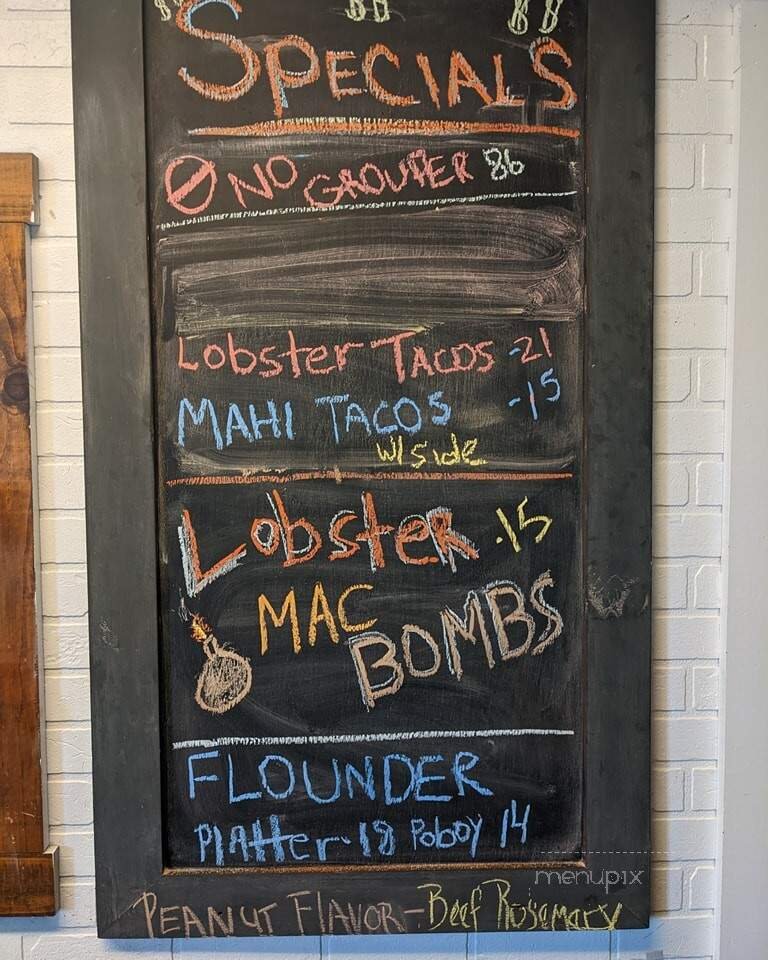 SPECIALS
NO GROUPER 86
Lobster TACOS -21
MAHI TACOS -15
w/side
Lobster .15
MAC
BOMBS
FLOUNDER
Platter-18 Poboy 14
menupix
PEANUT FLAVOR-Beef Rosemary